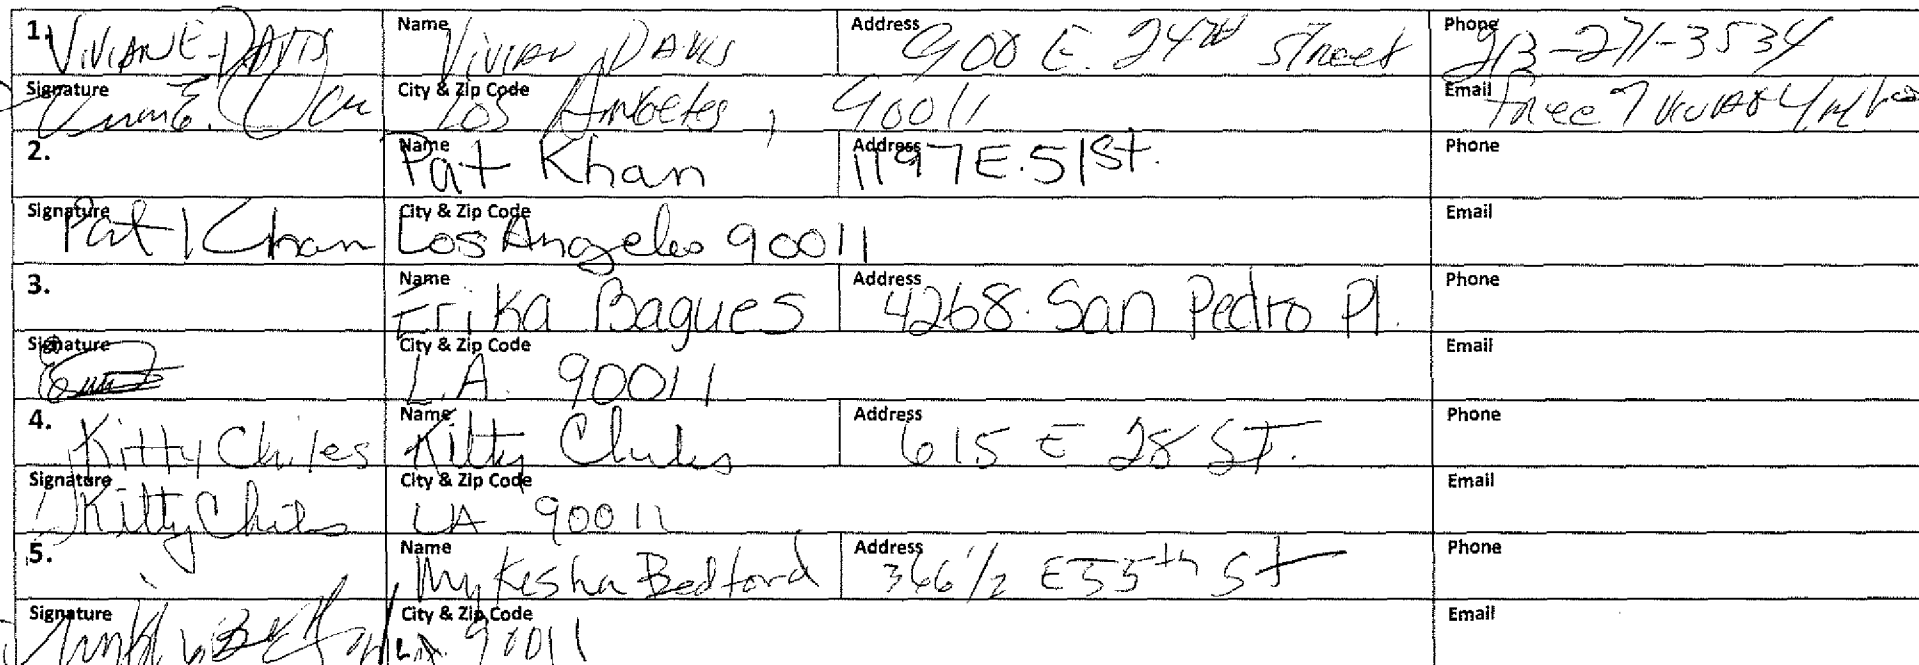 1. VIVIAN E. DAVIS Name VIVIAN DAVIS Address 900 E. 24TH STREET Phone 213-271-3534
Signature City & Zip Code Los Angeles, 90011 Email
2. Name Pat Khan Address 1197 E. 51 St. Phone
Signature Pat Khan City & Zip Code Los Angeles 90011 Email
3. Name Erika Bagues Address 4268. San Pedro Pl. Phone
Signature City & Zip Code L.A. 90011 Email
4. Kitty Chiles Name Kitty Chiles Address 615 E 28 ST. Phone
Signature Kitty Chiles City & Zip Code LA 90011 Email
5. Name Mykesha Bedford Address 366 1/2 E 55th St Phone
Signature City & Zip Code L.A. 90011 Email